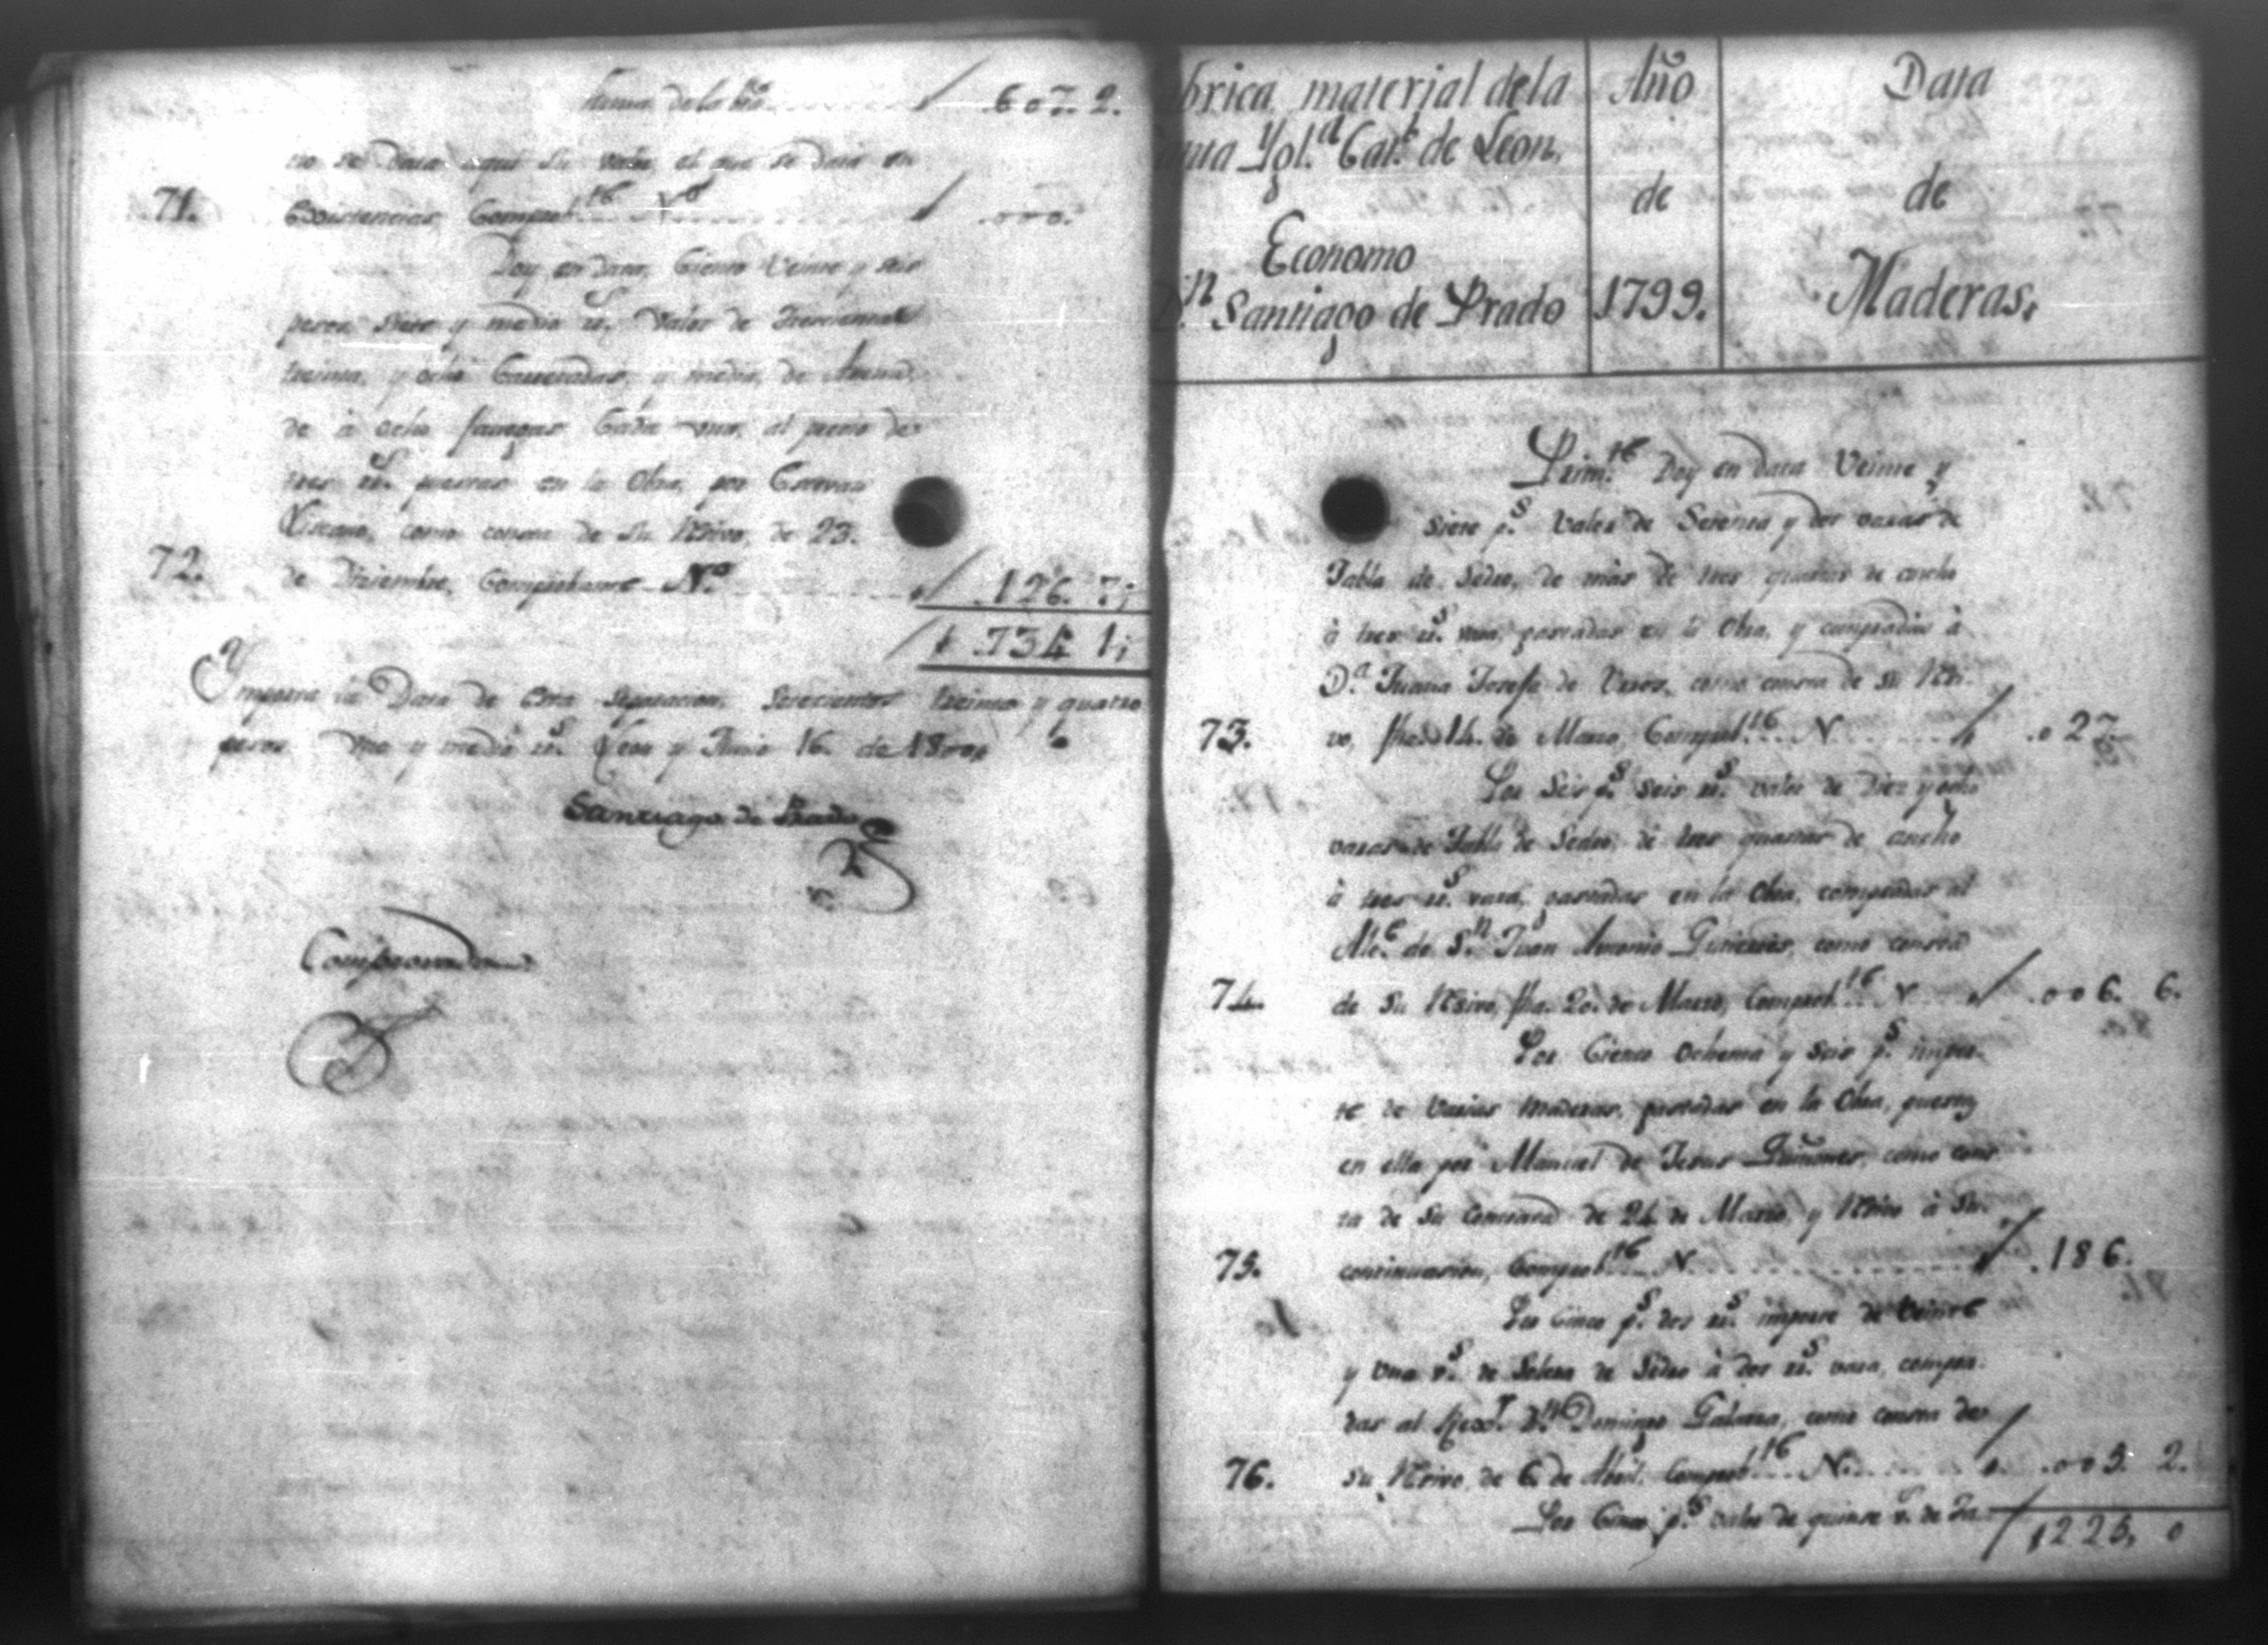 Suma de la bta. 607. 2.
no se Data aqui su valor el que se dará en
71. Existencias Comprob.te N.o .000.
Doy en Data, Ciento Veinte y seis
pesos siete y medio rs. valor de Trescientas
treinta, y ocho Carretadas, y media, de Arena,
de à ocho fanegas Cada una, al precio de
tres rs. puestas en la Obra, por
como consta de su Rvo, de 23.
72. de Diziembre, Comprobante N.o 126. 7½
734 1½
Ymporta la Data de esta Separacion, Setecientos treinta y quatro
pesos uno y medio rs. Leon y Junio 16. de 1800.
Santiago de Prado
Comprovada
brica material dela
anta Ygl.a Cat.l de Leon,
Economo
D.n Santiago de Prado
Año
de
1799.
Data
de
Maderas.
Prim.te Doy en data Veinte y
siete p.s Valor de Setenta y dos varas de
Tabla de Sedro, de màs de tres quartas de ancho
à tres rs. vara, gastadas en la Obra, y compradas à
D.a Juana Josefa de como consta de su Rvi-
73. vo, fha. 14. de Marzo, Comprob.te N .027.
Por Seis p.s Seis rs. valor de Diez y ocho
varas de Tabla de Sedro, de tres quartas de ancho
à tres rs. vara, gastadas en la Obra, compradas al
de S.n Juan Antonio Gutierres, como consta
74. de su Rvivo, fha. 20. de Marzo, Comprob.te N .006. 6.
Por Ciento ochenta y seis p.s impor-
te de Varias Maderas, gastadas en la Obra, puestas
en ella por Manuel de Jesus Quiñones, como cons-
ta de su Contrata de 24. de Marzo, y Rvivo à su
75. continuacion, Comprob.te N .186.
Por Cinco p.s dos rs. importe de Veinte
y una v.s de Solera de Sedro à dos rs. vara, compra-
das al D.n Domingo Galarza, como consta de
76. su Rvivo de 6. de Abril. Comprob.te N. .005. 2.
Por Cinco p.s valor de quinse v.s de Ta-
225. 0